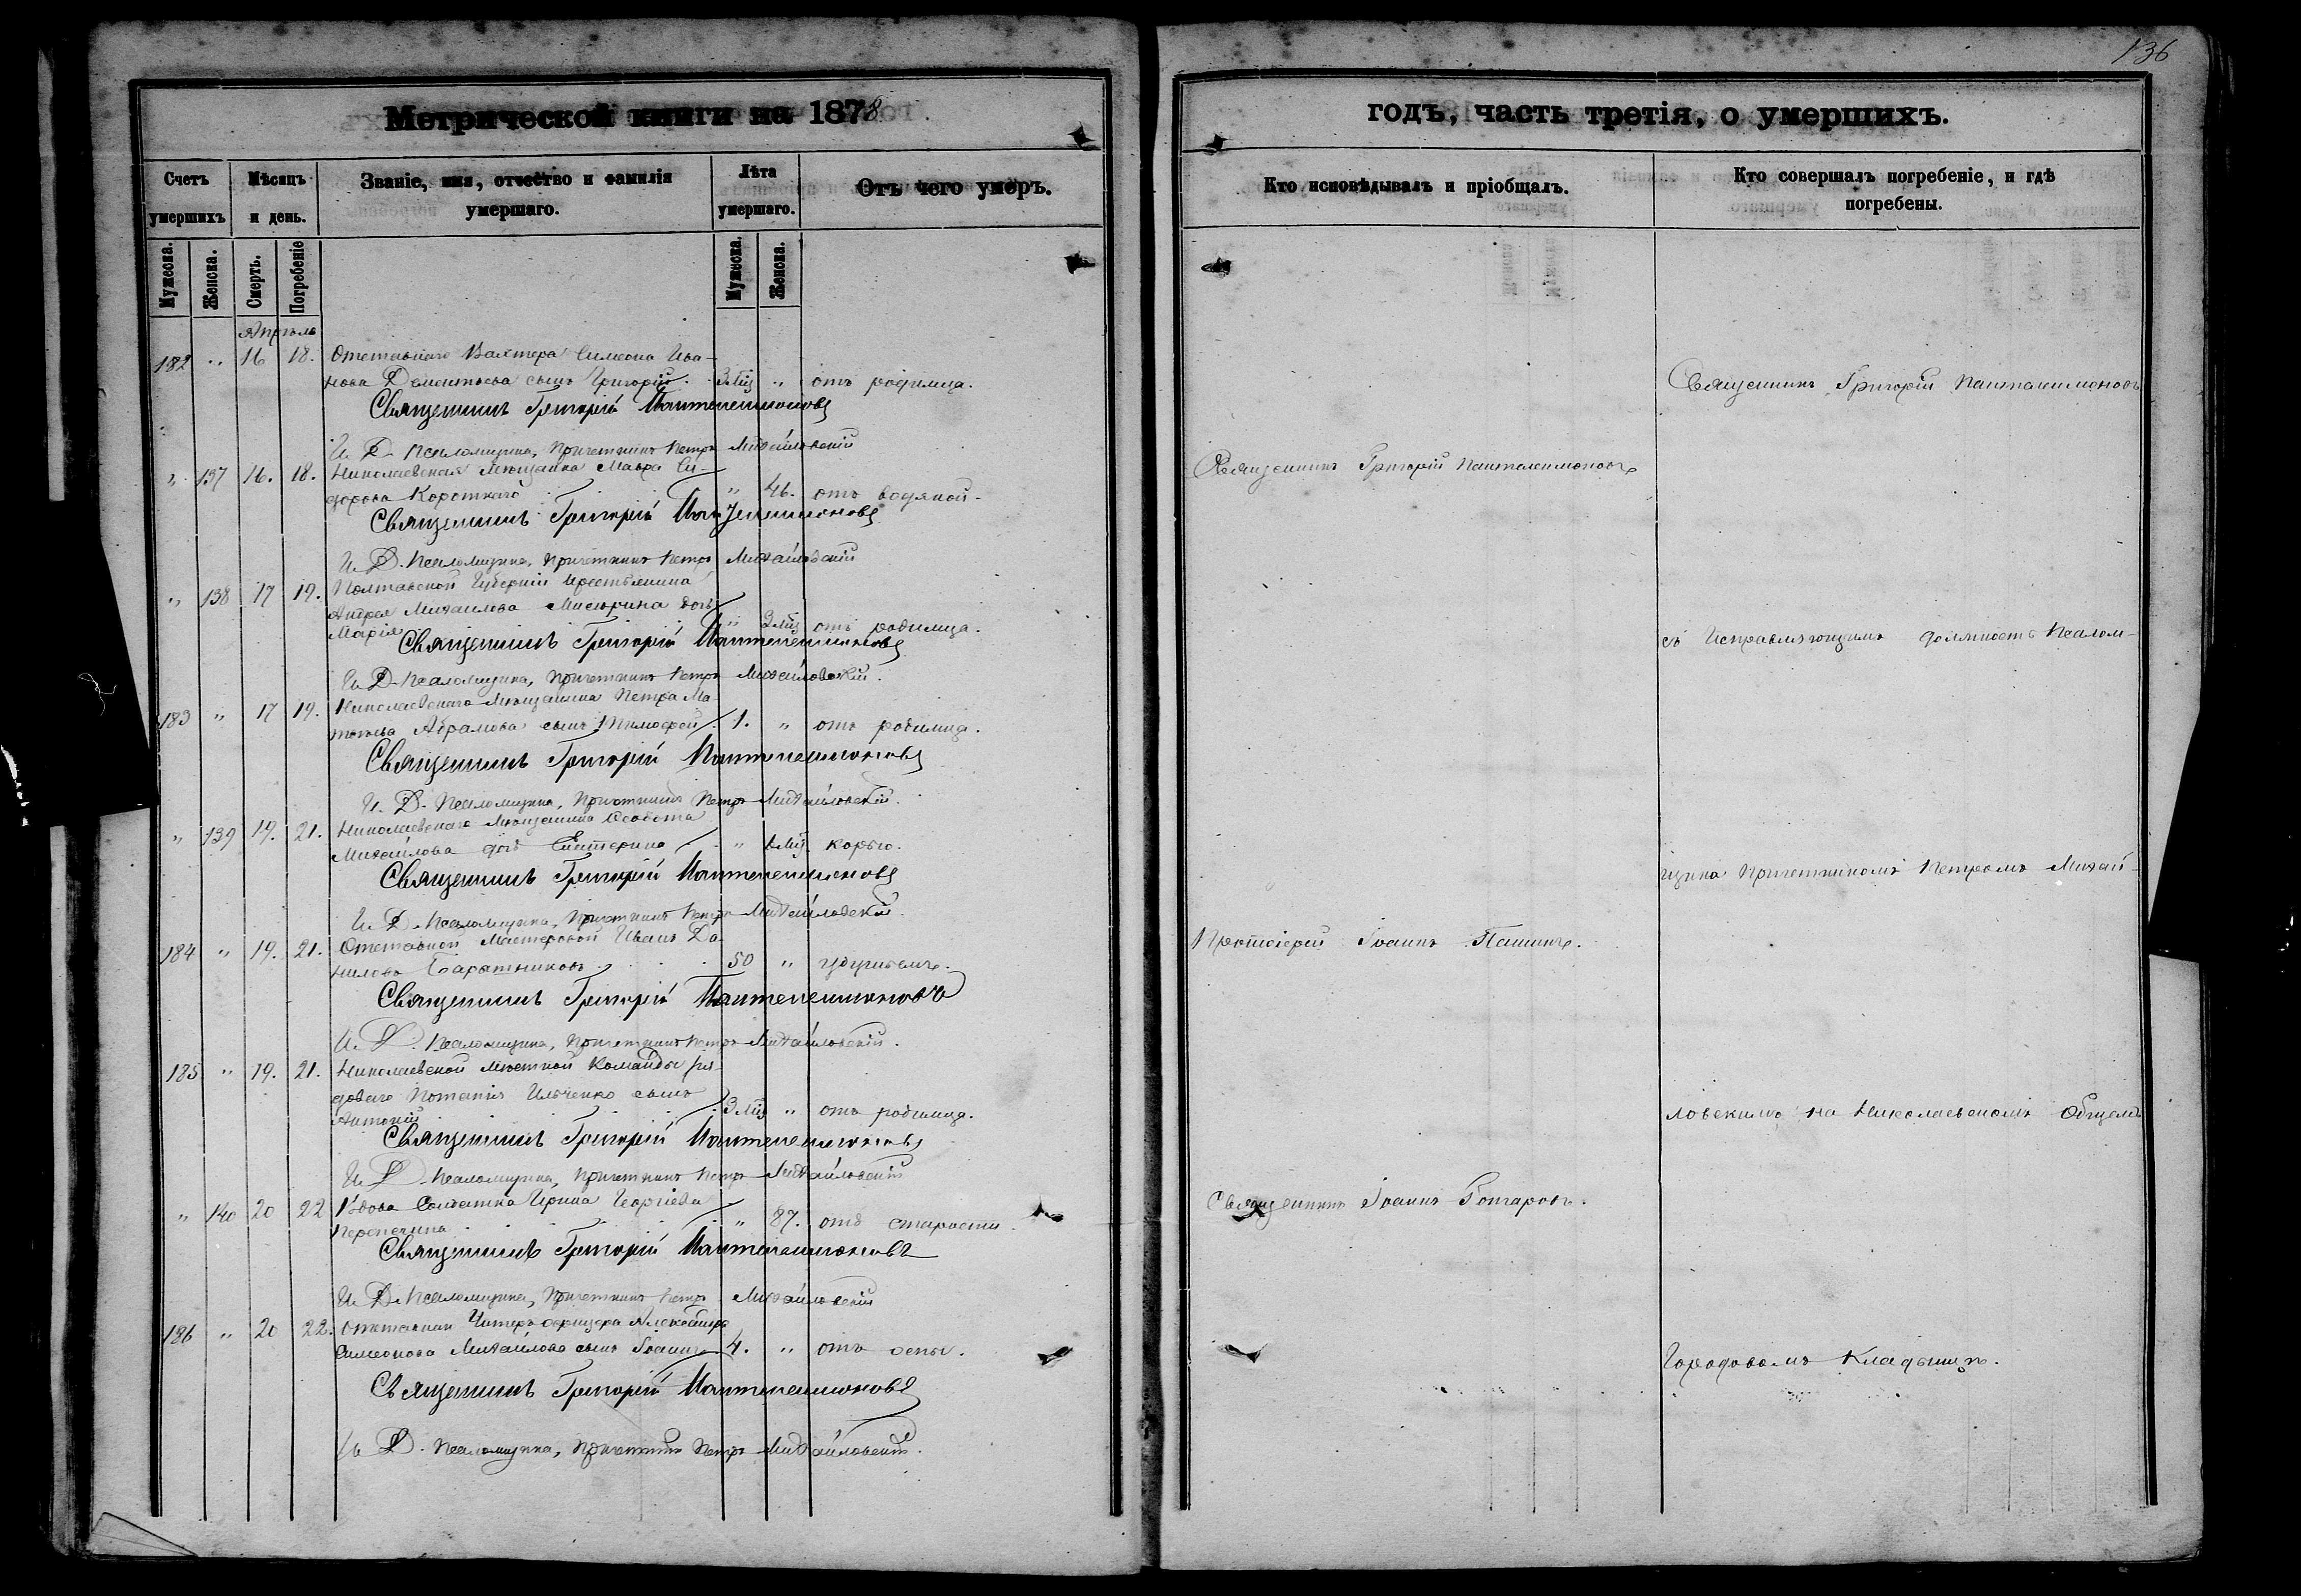 136
Метрической книги на 1878
годъ, часть третія, о умершихъ.
Счетъ умершихъ
Мѣсяцъ и день.
Званіе, имя, отчество и фамилія умершаго.
Лѣта умершаго.
Отъ чего умеръ.
Кто исповѣдывалъ и пріобщалъ.
Кто совершалъ погребеніе, и гдѣ погребены.
Мужеска. Женска. Смерть. Погребеніе
Мужеска. Женска.
Апрѣль
182 " 16 18. Отставнаго Вахтера Симеона Ива-
нова Дементьева сынъ Григорій. 3 мц " отъ родимца.
Священникъ Григорій Пантелеимоновъ
Священникъ Григорій Пантелеимоновъ
И. Д. Псаломщика, Причетникъ Петръ Михайловскій
" 137 16. 18. Николаевская Мѣщанка Мавра Си-
дорова Короткаго " 46. отъ водяной.
Священникъ Григорій Пантелеимоновъ
Священникъ Григорій Пантелеимоновъ
И. Д. Псаломщика, Причетникъ Петръ Михайловскій
" 138 17 19. Полтавской Губерніи крестьянина
Андрея Михаилова Мисюрина дочь
Марія " 3 мц отъ родимца.
Священникъ Григорій Пантелеимоновъ
съ Исправляющимъ должность Псалом-
И. Д. Псаломщика, Причетникъ Петръ Михайловскій.
183 " 17 19. Николаевскаго Мѣщанина Петра Ма-
твѣева Абрамова сынъ Тимофей 1. " отъ родимца.
Священникъ Григорій Пантелеимоновъ
И. Д. Псаломщика, Причетникъ Петръ Михайловскій.
" 139 19. 21. Николаевскаго Мѣщанина
Михайлова дочь Екатерина " мц. корью.
Священникъ Григорій Пантелеимоновъ
щика Причетникомъ Петромъ Михай-
И. Д. Псаломщика, Причетникъ Петръ Михайловскій.
184 " 19. 21. Отставной Мастеровой Иванъ Да-
ниловъ 50 " удушьемъ.
Протоіерей Іоаннъ
Священникъ Григорій Пантелеимоновъ
И. Д. Псаломщика, Причетникъ Петръ Михайловскій.
185 " 19. 21. Николаевской мѣстной Команды ря-
доваго Потапія Ильченко сынъ
Антоній 3 мц " отъ родимца.
ловскимъ на Николаевскомъ Общемъ
Священникъ Григорій Пантелеимоновъ
И. Д. Псаломщика, Причетникъ Петръ Михайловскій
" 140 20 22 Вдова Солдатка Ирина Георгіева
" 87. отъ старости.
Священникъ Іоаннъ
Священникъ Григорій Пантелеимоновъ
И. Д. Псаломщика, Причетникъ Петръ Михайловскій
186 " 20 22. Отставнаго Унтеръ-офицера Александра
Симеонова Михайлова сынъ Іоаннъ 4. " отъ оспы.
Городовомъ Кладбищѣ.
Священникъ Григорій Пантелеимоновъ
И. Д. Псаломщика, Причетникъ Петръ Михайловскій.